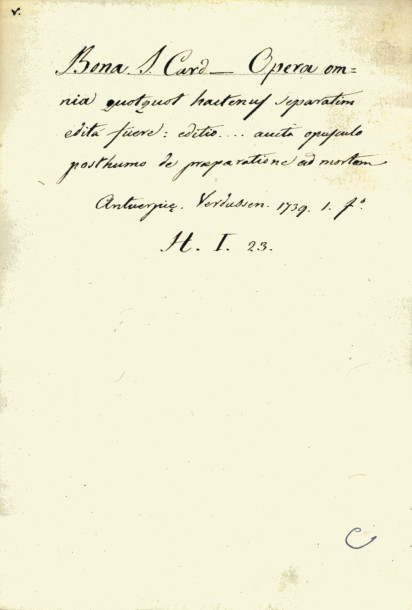 v.
Bona J. Card — Opera om=
nia quotquot hactenus separatim
edita fuere: editio.... aucta opusculo
posthumo de præparatione ad mortem
Antuerpiæ. Verdussen. 1739. 1. fº.
H. I. 23.